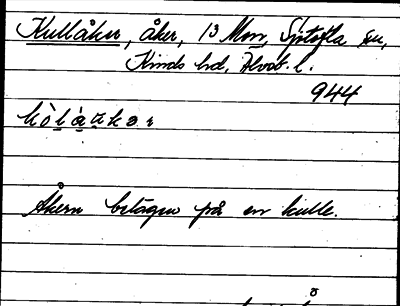 Kullåker, åker, 13 Mon, Sjötofta sn,
Kinds hd, Älvsb. l.
944
Åkern belägen på en kulle.